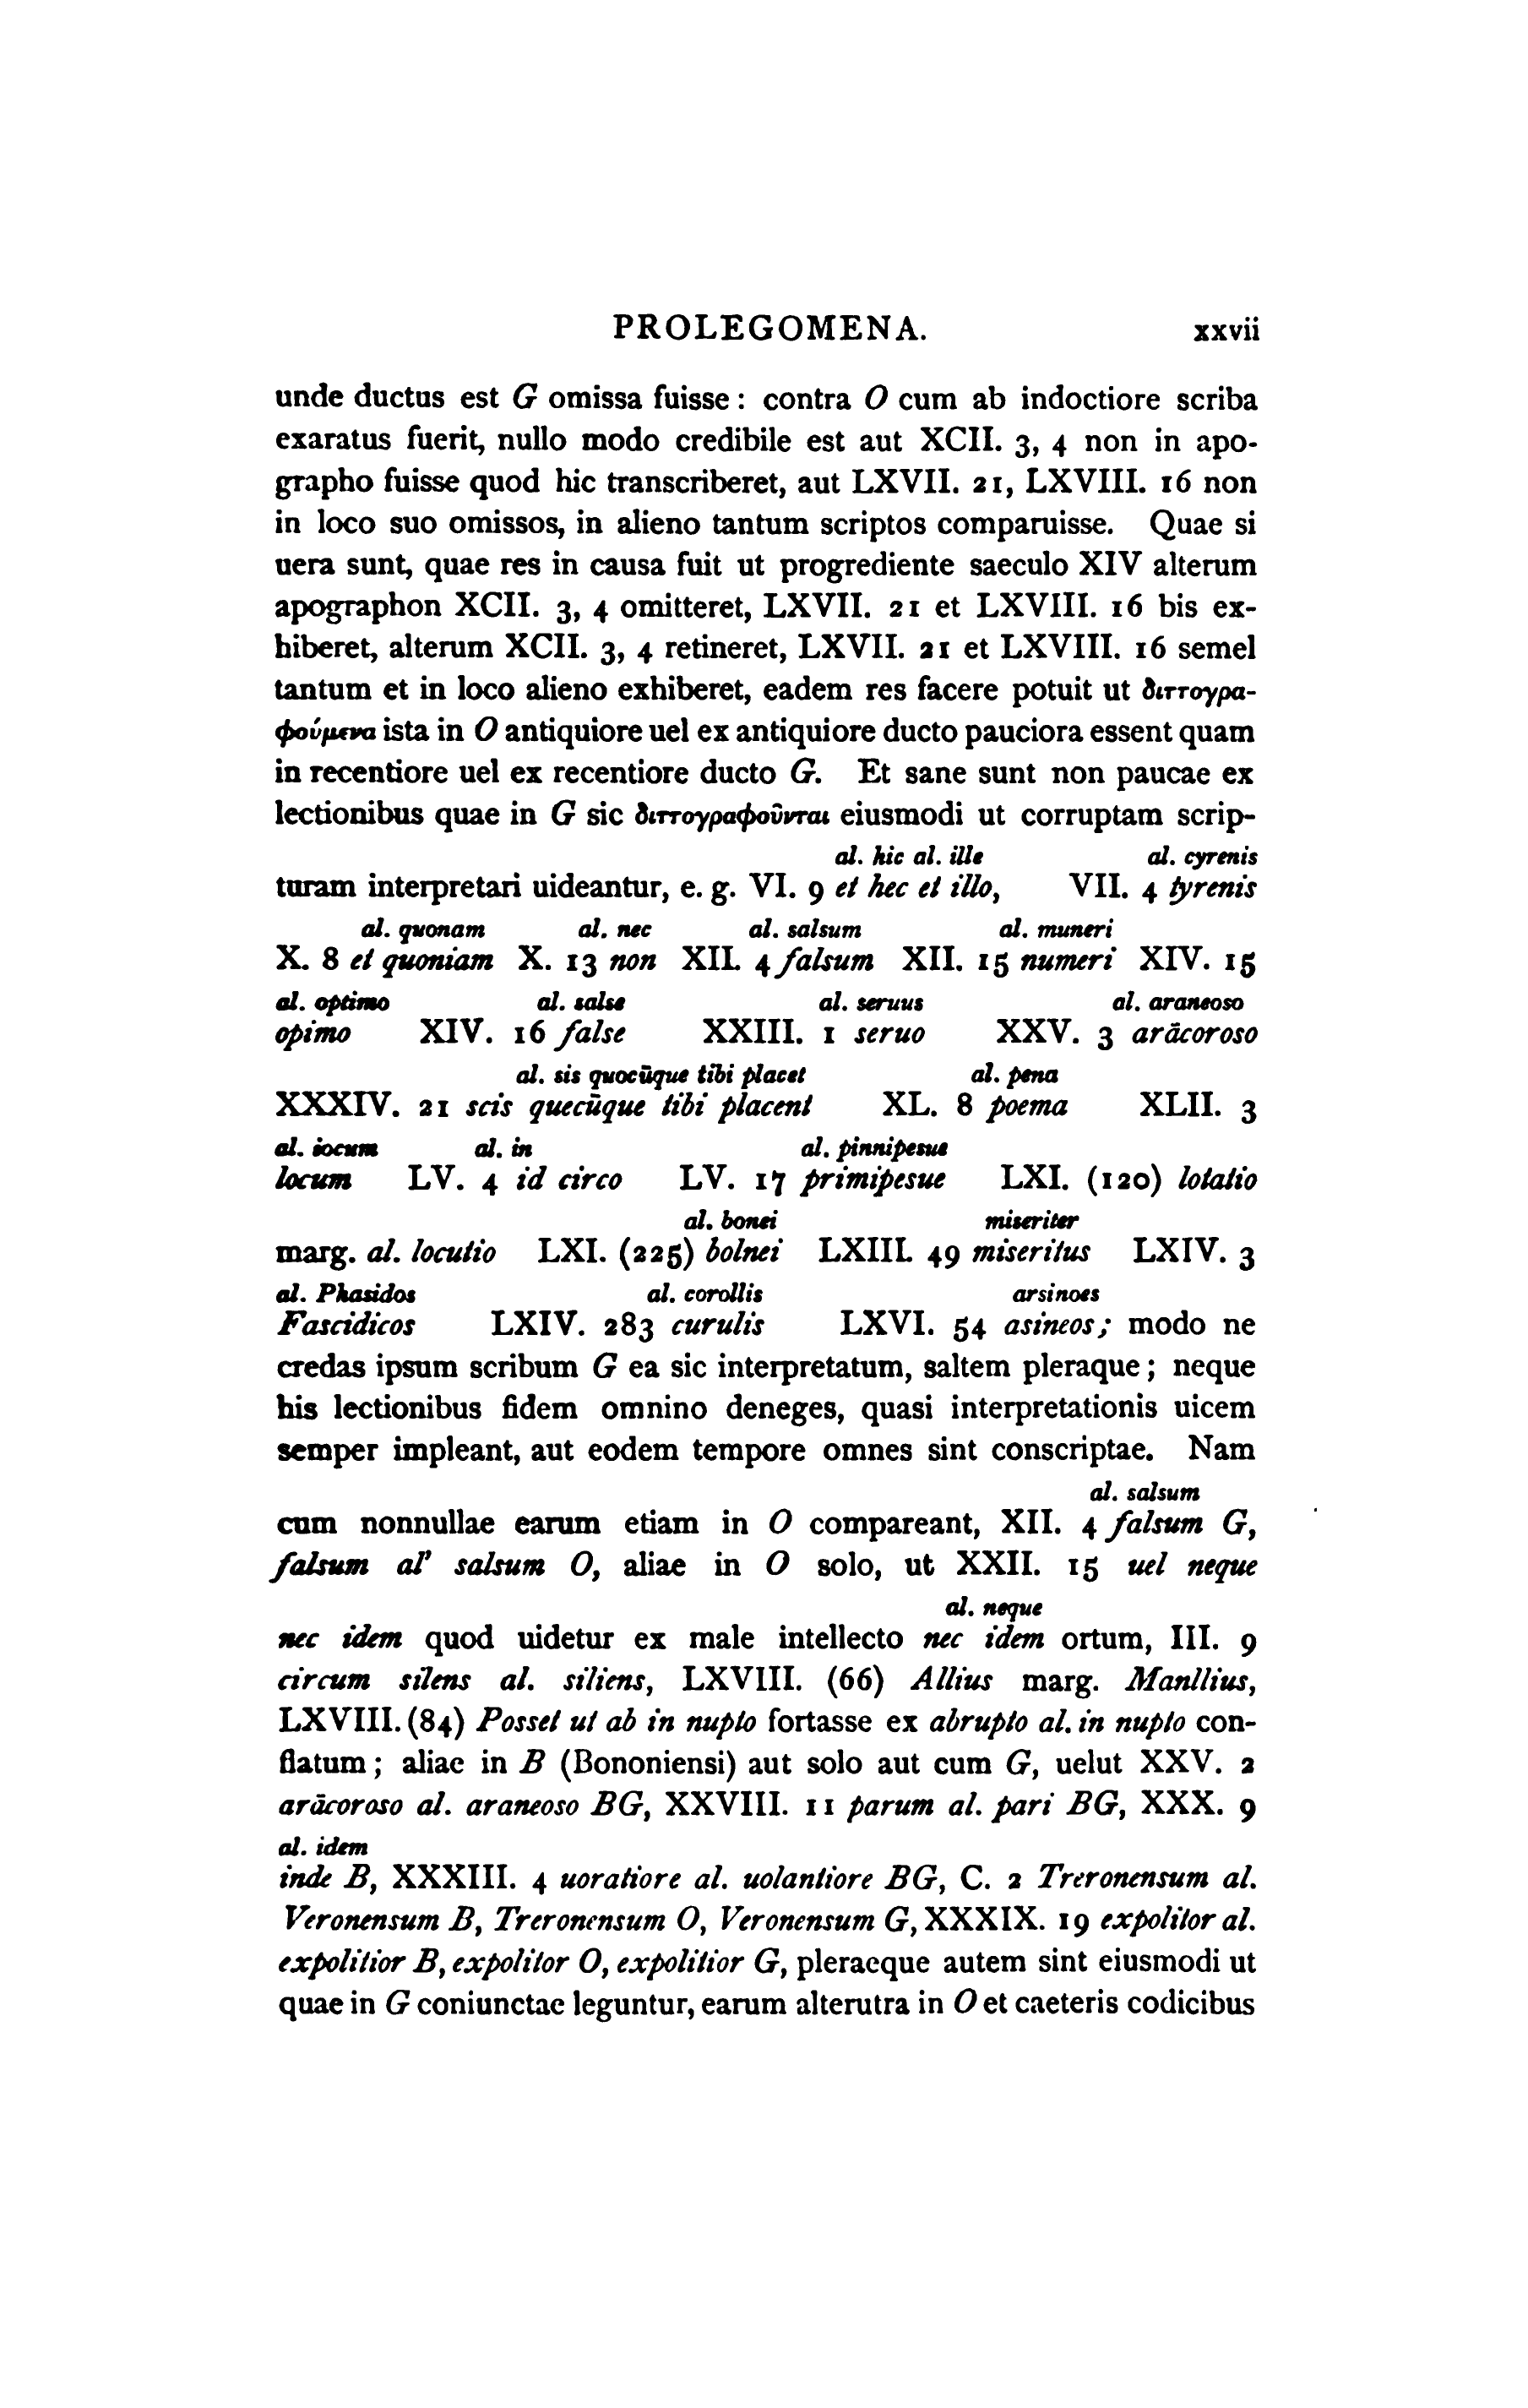 PROLEGOMENA. xxvii
unde ductus est G omissa fuisse: contra O cum ab indoctiore scriba
exaratus fuerit, nullo modo credibile est aut XCII. 3, 4 non in apo-
grapho fuisse quod hic transcriberet, aut LXVII. 21, LXVIII. 16 non
in loco suo omissos, in alieno tantum scriptos comparuisse. Quae si
uera sunt, quae res in causa fuit ut progrediente saeculo XIV alterum
apographon XCII. 3, 4 omitteret, LXVII. 21 et LXVIII. 16 bis ex-
hiberet, alterum XCII. 3, 4 retineret, LXVII. 21 et LXVIII. 16 semel
tantum et in loco alieno exhiberet, eadem res facere potuit ut διττογρα-
φούμενα ista in O antiquiore uel ex antiquiore ducto pauciora essent quam
in recentiore uel ex recentiore ducto G. Et sane sunt non paucae ex
lectionibus quae in G sic διττογραφοῦνται eiusmodi ut corruptam scrip-
al. hic al. ille al. cyrenis
turam interpretari uideantur, e. g. VI. 9 et hec et illo, VII. 4 tyrenis
al. quonam al. nec al. salsum al. muneri
X. 8 et quoniam X. 13 non XII. 4 falsum XII. 15 numeri XIV. 15
al. optimo al. salse al. seruus al. araneoso
opimo XIV. 16 false XXIII. 1 seruo XXV. 3 arācoroso
al. sis quocūque tibi placet al. pena
XXXIV. 21 scis quecūque tibi placent XL. 8 poema XLII. 3
al. iocum al. in al. pinnipesue
locum LV. 4 id circo LV. 17 primipesue LXI. (120) lotatio
al. bonei miseriter
marg. al. locutio LXI. (225) bolnei LXIII. 49 miseritus LXIV. 3
al. Phasidos al. corollis arsinoes
Fascidicos LXIV. 283 curulis LXVI. 54 asineos; modo ne
credas ipsum scribum G ea sic interpretatum, saltem pleraque; neque
his lectionibus fidem omnino deneges, quasi interpretationis uicem
semper impleant, aut eodem tempore omnes sint conscriptae. Nam
al. salsum
cum nonnullae earum etiam in O compareant, XII. 4 falsum G,
falsum al' salsum O, aliae in O solo, ut XXII. 15 uel neque
al. neque
nec idem quod uidetur ex male intellecto nec idem ortum, III. 9
circum silens al. siliens, LXVIII. (66) Allius marg. Manllius,
LXVIII. (84) Posset ut ab in nupto fortasse ex abrupto al. in nupto con-
flatum; aliae in B (Bononiensi) aut solo aut cum G, uelut XXV. 2
arācoroso al. araneoso BG, XXVIII. 11 parum al. pari BG, XXX. 9
al. idem
inde B, XXXIII. 4 uoratiore al. uolantiore BG, C. 2 Treronensum al.
Veronensum B, Treronensum O, Veronensum G, XXXIX. 19 expolitor al.
expolitior B, expolitor O, expolitior G, pleraeque autem sint eiusmodi ut
quae in G coniunctae leguntur, earum alterutra in O et caeteris codicibus